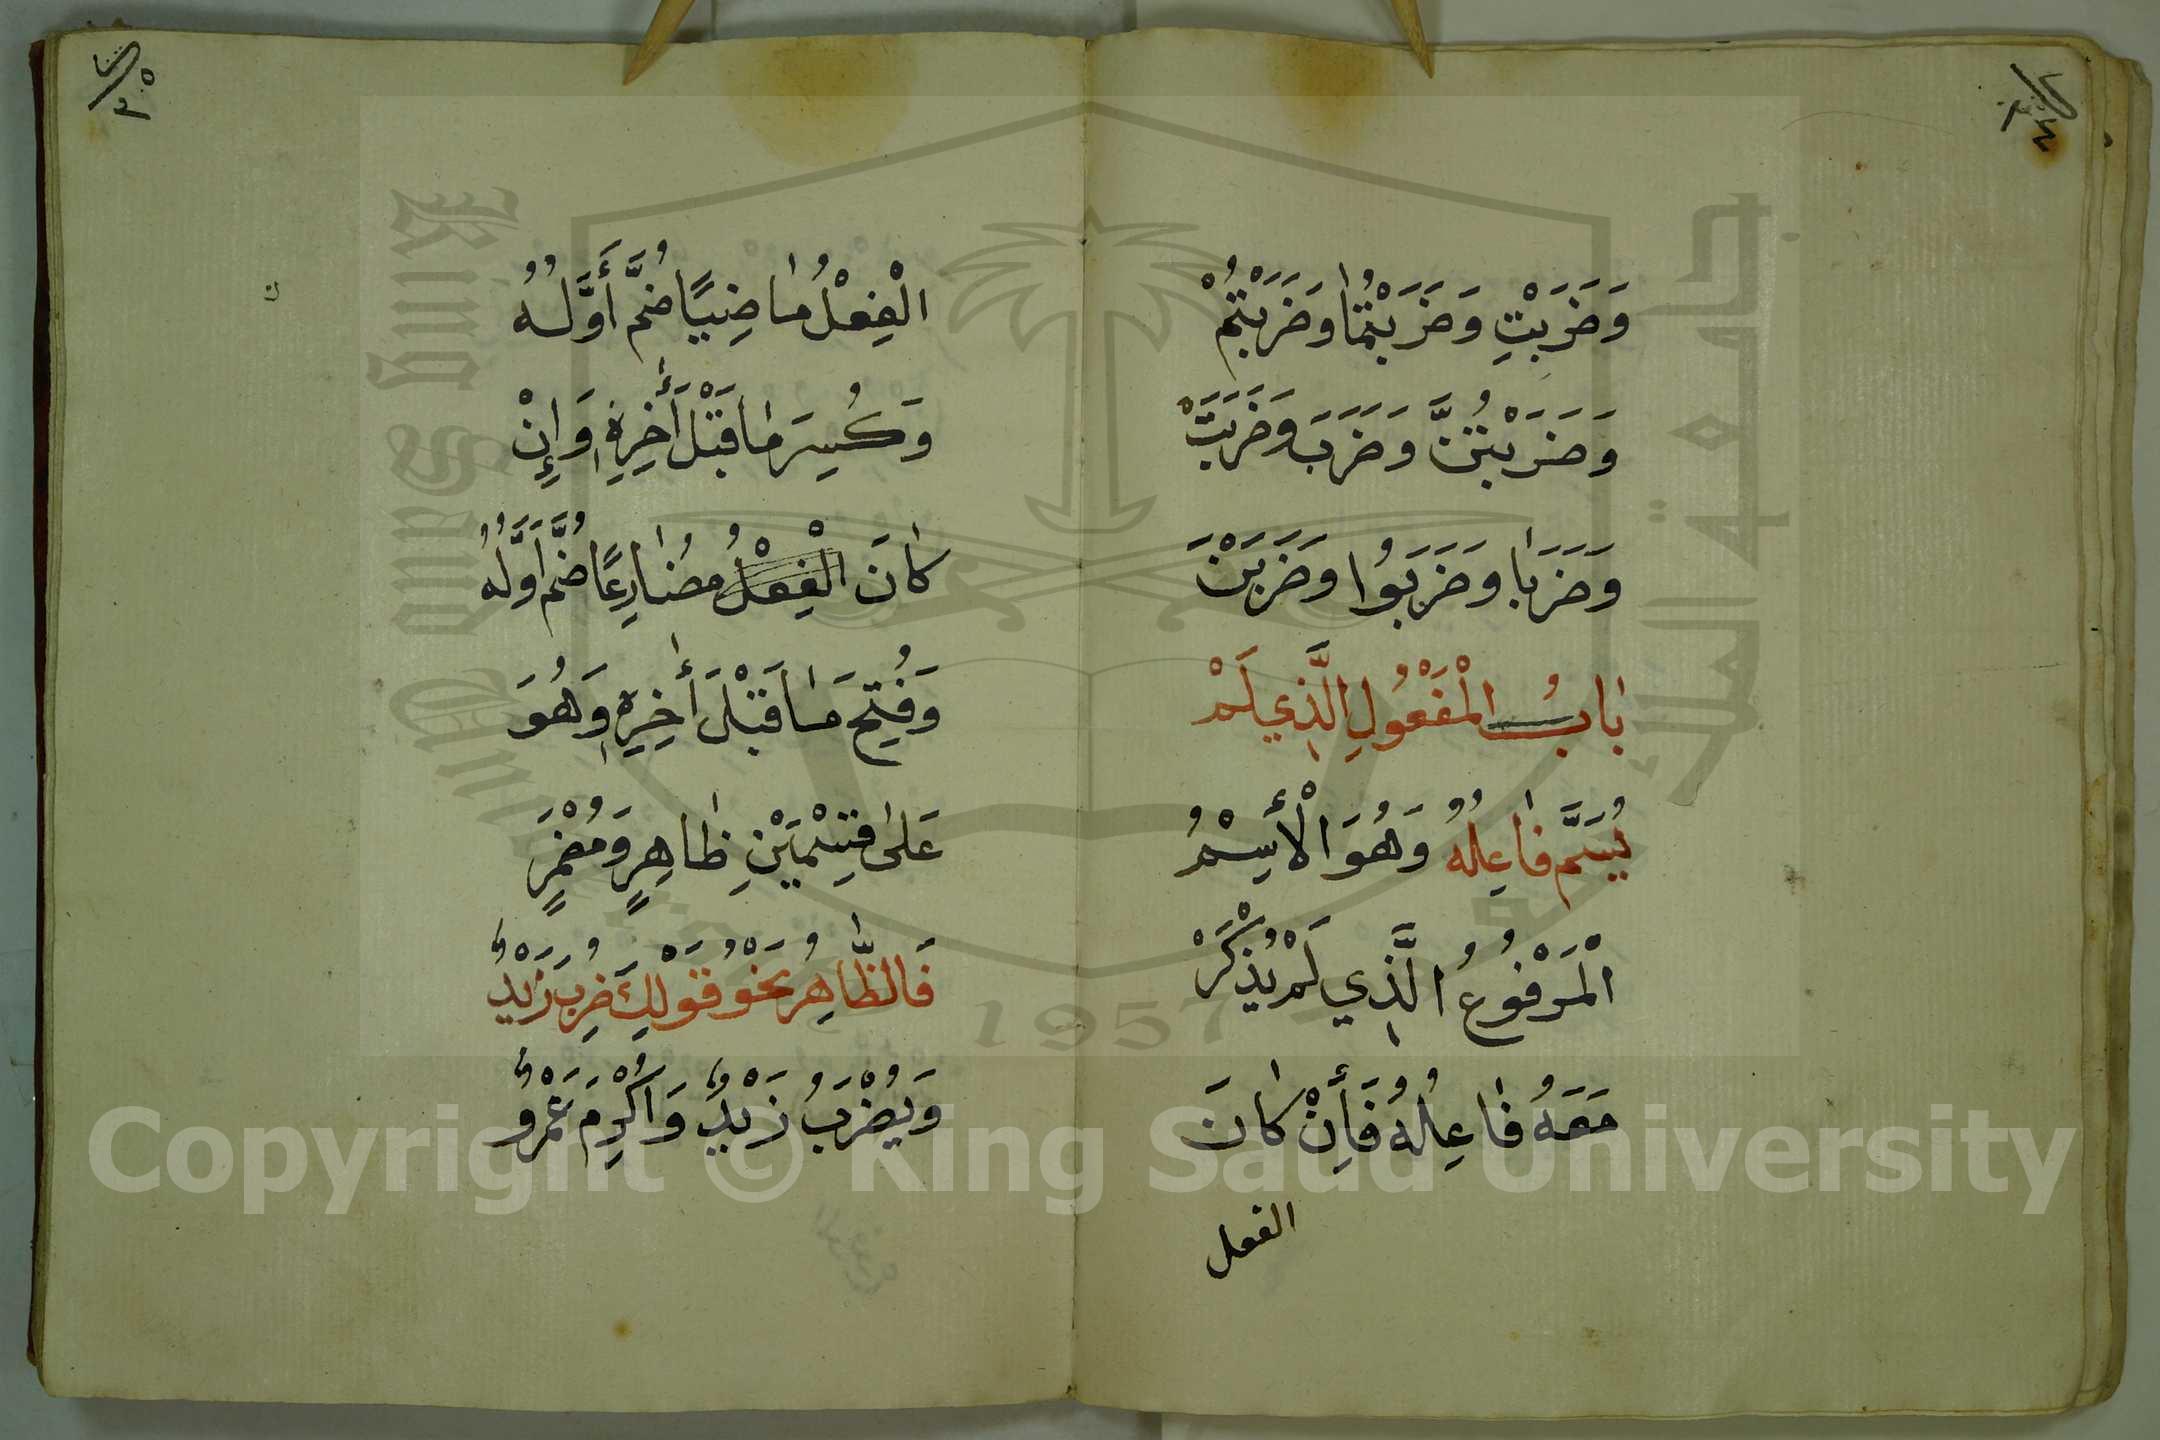 وَضَرَبْتِ وَضَرَبْتُمَا وَضَرَبْتُمْ
وَضَرَبْتُنَّ وَضَرَبَ وَضَرَبَتْ
وَضَرَبَا وَضَرَبُوا وَضَرَبْنَ
بَابُ الْمَفْعُولِ الَّذِي لَمْ
يُسَمَّ فَاعِلُهُ وَهُوَ الْأَسِمْ
الْمَرْفُوعُ الَّذِي لَمْ يُذْكَرْ
مَعَهُ فَاعِلُهُ فَأِنْ كَانَ
الفعل
الْفِعْلُ مَاضِيًا ضُمَّ أَوَّلُهُ
وَكُسِرَ مَا قَبْلَ أَخِرِهِ وَإِنْ
كَانَ الْفِعْلُ مُضَارِعًا ضُمَّ اَوَّلُهُ
وَفُتِحَ مَا قَبْلَ أَخِرِهِ وَهُوَ
عَلَى قِسْمَيْنِ ظَاهِرٍ وَمُضْمَرٍ
فَالظَّاهِرُ نَحْوُ قَوْلِكَ ضُرِبَ زَيْدٌ
وَيُضْرَبُ زَيْدٌ وَاُكْرِمَ عَمْرٌو
1957
Copyright © King Saud University